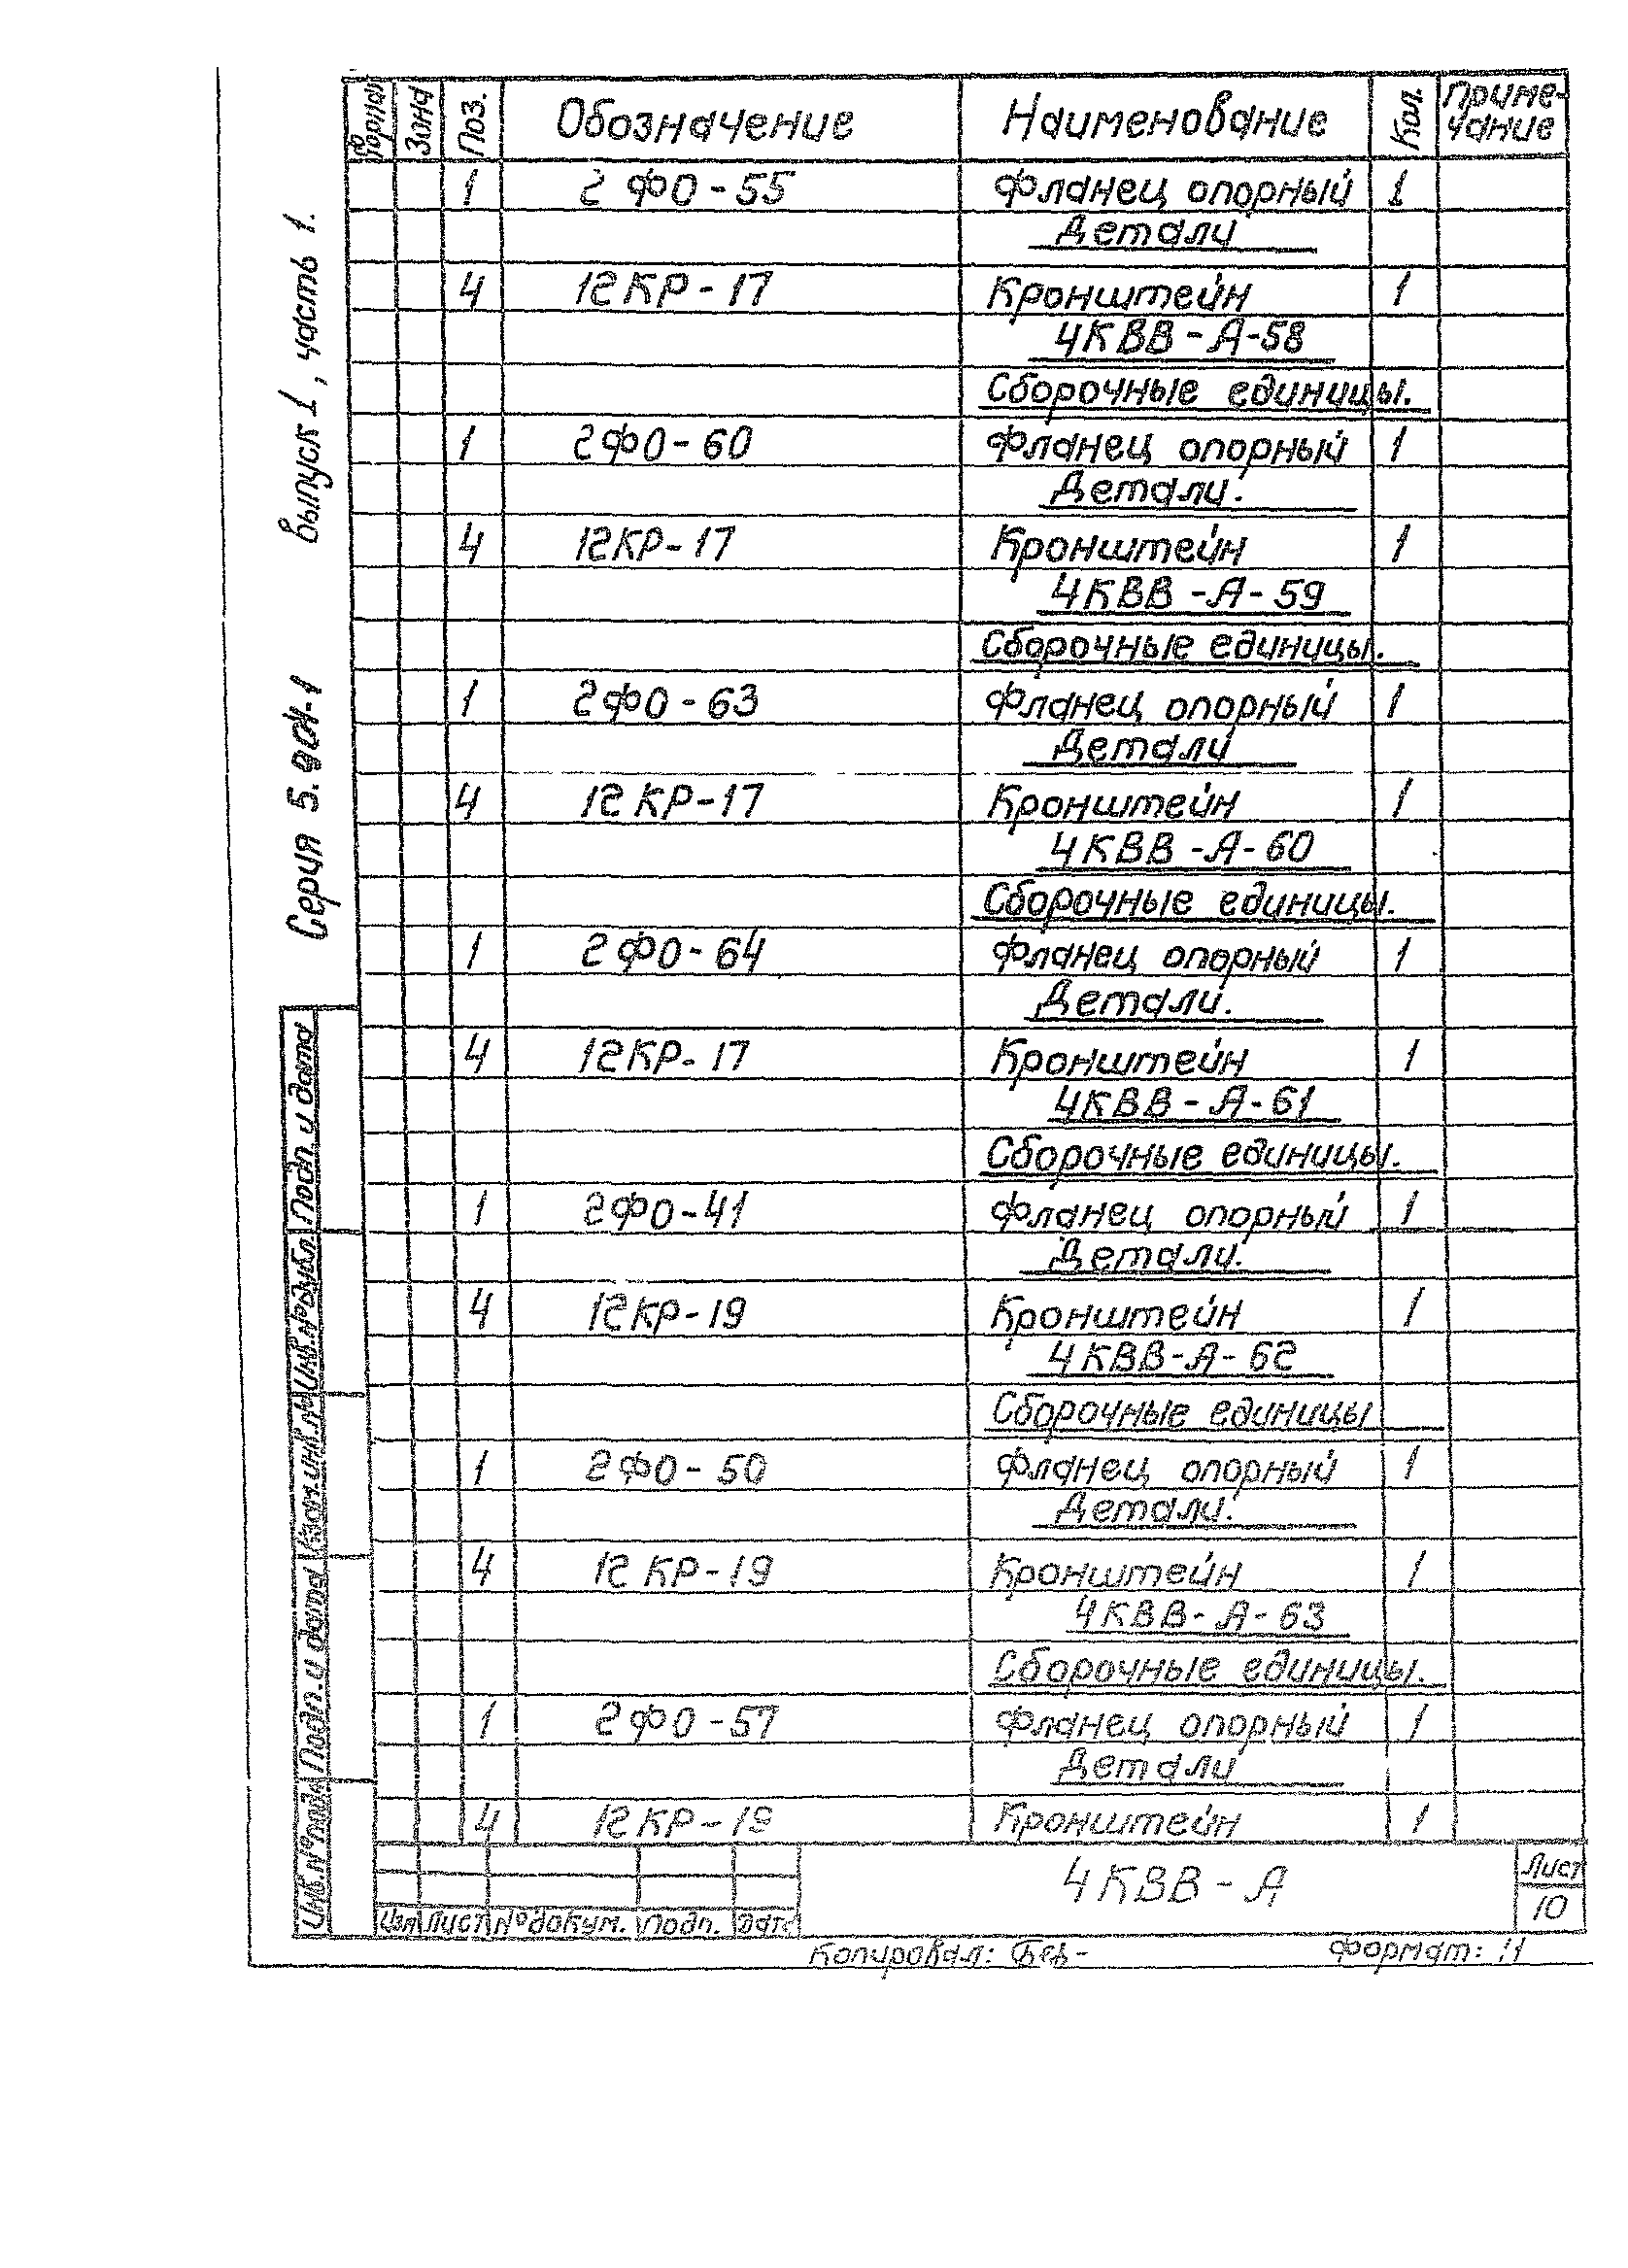 Формат Зона Поз. Обозначение Наименование Кол. Приме-
чание
1 2ФО-55 Фланец опорный 1
Детали
4 12КР-17 Кронштейн 1
4КВВ-А-58
Сборочные единицы.
1 2ФО-60 Фланец опорный 1
Детали.
4 12КР-17 Кронштейн 1
4КВВ-А-59
Сборочные единицы.
1 2ФО-63 Фланец опорный 1
Детали
4 12КР-17 Кронштейн 1
4КВВ-А-60
Сборочные единицы.
1 2ФО-64 Фланец опорный 1
Детали.
4 12КР-17 Кронштейн 1
4КВВ-А-61
Сборочные единицы.
1 2ФО-41 Фланец опорный 1
Детали.
4 12КР-19 Кронштейн 1
4КВВ-А-62
Сборочные единицы
1 2ФО-50 Фланец опорный 1
Детали.
4 12КР-19 Кронштейн 1
4КВВ-А-63
Сборочные единицы.
1 2ФО-57 Фланец опорный 1
Детали
4 12КР-19 Кронштейн 1
4КВВ-А
Лист
10
Изм Лист №докум. Подп. Дата
Копировал: Формат: 11
Серия 5.904-1 Выпуск 1, часть 1.
Инв.№подл Подп. и дата Взам.инв.№ Инв.№дубл. Подп. и дата